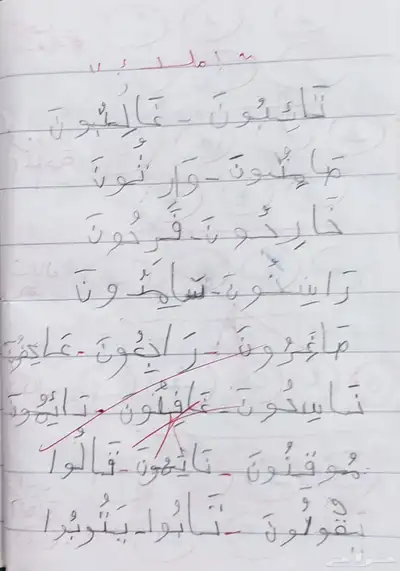 املاء
تَائِبُونَ - غَالِبُونَ
صَامِتُونَ - وَارِثُونَ
خَارِجُونَ - فَرِحُونَ
رَاسِخُونَ - سَامِدُونَ
صَاغِرُونَ - رَاجِعُونَ - عَاكِفُونَ
غَافِلُونَ -
مُوقِنُونَ - تَائِهُونَ - قَالُوا
يَقُولُونَ - تَابُوا - يَتُوبُوا